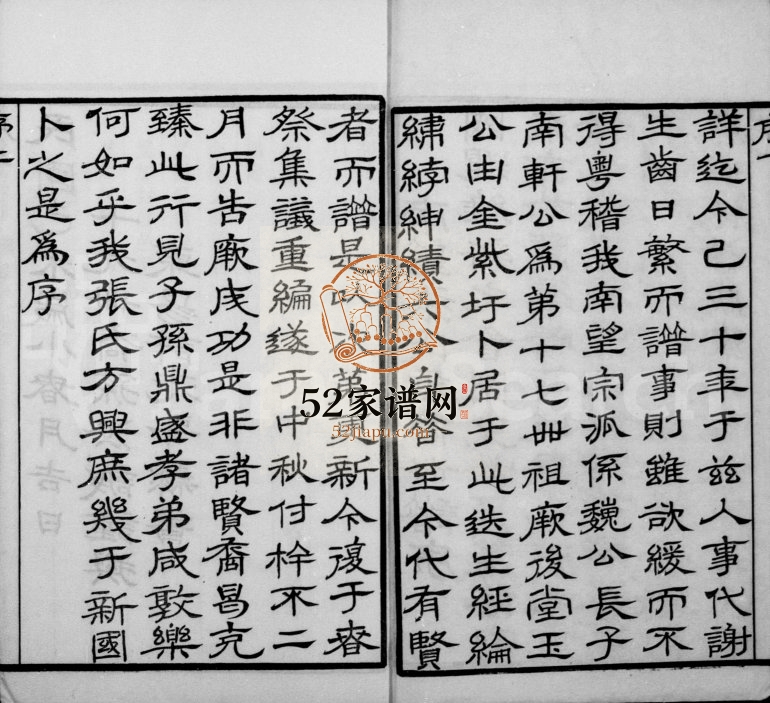 序一
詳迄今已三十年于兹人事代謝
生齒日繁而譜事則雖欲緩而不
得粤稽我南望宗派係魏公長子
南軒公為第十七卋祖厥後堂玉
公由金紫圩卜居于此迭生經綸
繡綍紳績 至今代有賢
者而譜是 新今復于春
祭集議重編遂于中秋付梓不二
月而告厥成功是非諸賢裔曷克
臻此行見子孫鼎盛孝弟咸敦樂
何如乎我張氏方興庶幾于新國
卜之是為序
序二
52家谱网
52jiapu.com